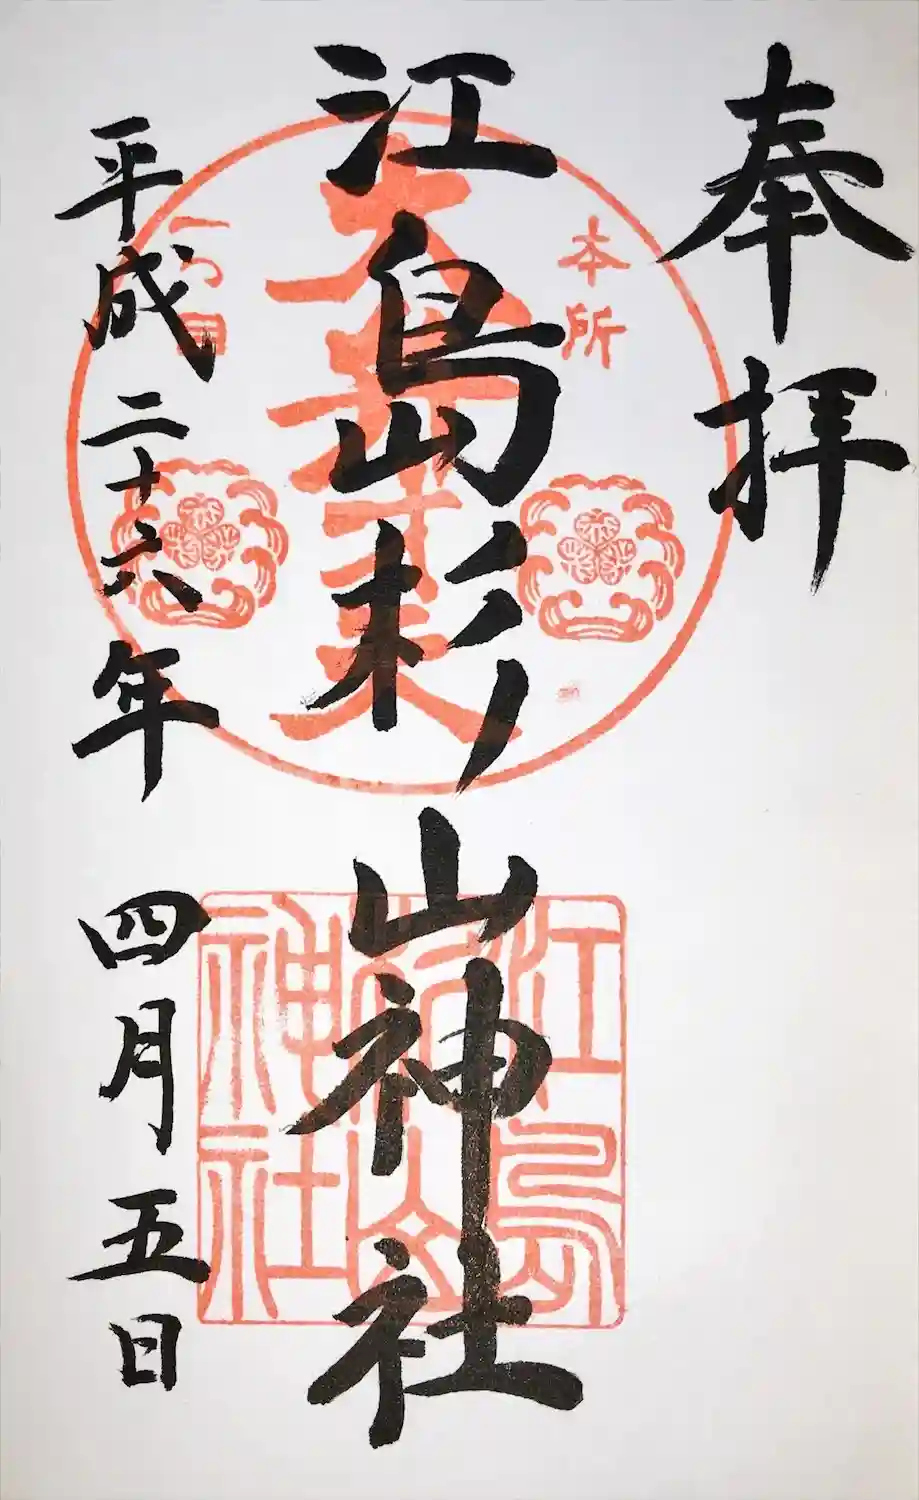 奉拝
本所
江島杉山神社
一つ目
平成二十六年 四月五日
江島
杉山
神社